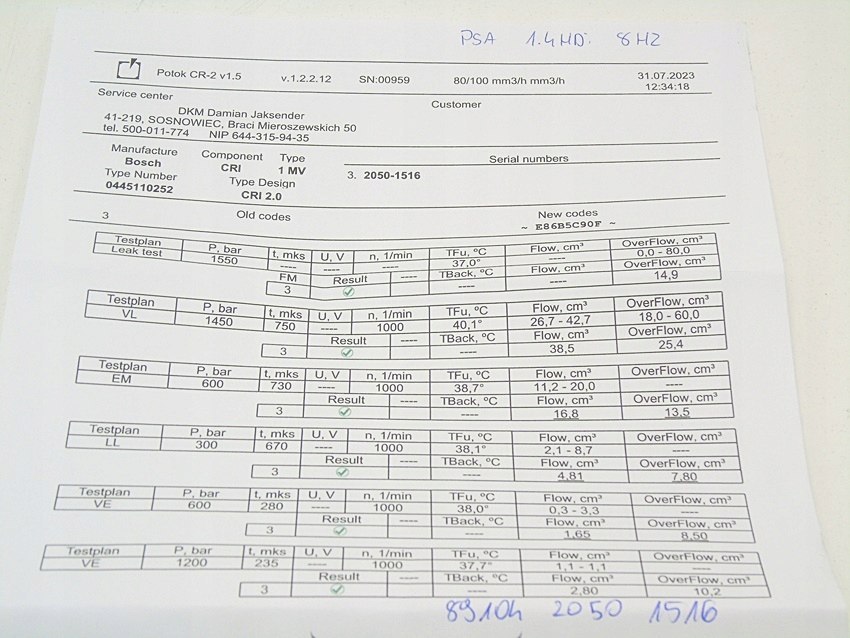 PSA 1.4HDi 8HZ
Potok CR-2 v1.5 v.1.2.2.12 SN:00959 80/100 mm3/h mm3/h 31.07.2023
12:34:18
Service center Customer
DKM Damian Jaksender
41-219, SOSNOWIEC, Braci Mieroszewskich 50
tel. 500-011-774 NIP 644-315-94-35
Manufacture Component Type Serial numbers
Bosch CRI 1 MV 3. 2050-1516
Type Number Type Design
0445110252 CRI 2.0
3 Old codes New codes
~ E86B5C90F ~
Testplan P, bar t, mks U, V n, 1/min TFu, ºC Flow, cm³ OverFlow, cm³
Leak test 1550 ---- ---- ---- 37,0° ---- 0,0 - 80,0
FM Result ---- TBack, ºC Flow, cm³ OverFlow, cm³
3 ---- ---- 14,9
Testplan P, bar t, mks U, V n, 1/min TFu, ºC Flow, cm³ OverFlow, cm³
VL 1450 750 ---- 1000 40,1° 26,7 - 42,7 18,0 - 60,0
Result ---- TBack, ºC Flow, cm³ OverFlow, cm³
3 ---- 38,5 25,4
Testplan P, bar t, mks U, V n, 1/min TFu, ºC Flow, cm³ OverFlow, cm³
EM 600 730 ---- 1000 38,7° 11,2 - 20,0 ----
Result ---- TBack, ºC Flow, cm³ OverFlow, cm³
3 ---- 16,8 13,5
Testplan P, bar t, mks U, V n, 1/min TFu, ºC Flow, cm³ OverFlow, cm³
LL 300 670 ---- 1000 38,1° 2,1 - 8,7 ----
Result ---- TBack, ºC Flow, cm³ OverFlow, cm³
3 ---- 4,81 7,80
Testplan P, bar t, mks U, V n, 1/min TFu, ºC Flow, cm³ OverFlow, cm³
VE 600 280 ---- 1000 38,0° 0,3 - 3,3 ----
Result ---- TBack, ºC Flow, cm³ OverFlow, cm³
3 ---- 1,65 8,50
Testplan P, bar t, mks U, V n, 1/min TFu, ºC Flow, cm³ OverFlow, cm³
VE 1200 235 ---- 1000 37,7° 1,1 - 1,1 ----
Result ---- TBack, ºC Flow, cm³ OverFlow, cm³
3 ---- 2,80 10,2
89104 2050 1516